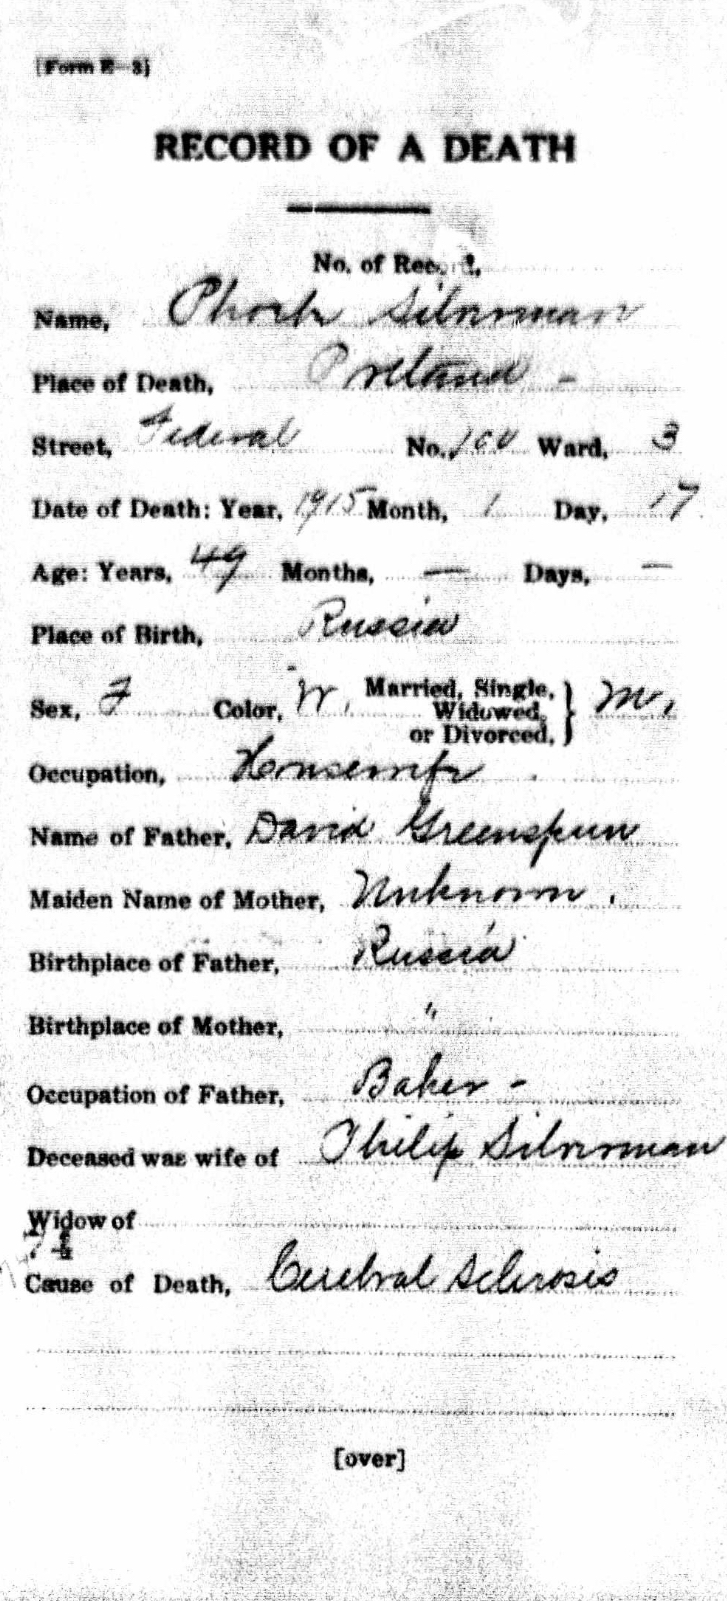 [Form E—3]
RECORD OF A DEATH
No. of Record,
Name, Phoebe Silverman
Place of Death, Portland -
Street, Federal No., 100 Ward, 3
Date of Death: Year, 1915 Month, 1 Day, 17
Age: Years, 49 Months, — Days, —
Place of Birth, Russia
Sex, F Color, W. Married, Single, Widowed, or Divorced, } M.
Occupation, Housewife .
Name of Father, David Greenspun
Maiden Name of Mother, Unknown .
Birthplace of Father, Russia
Birthplace of Mother, "
Occupation of Father, Baker -
Deceased was wife of Philip Silverman
Widow of
74
Cause of Death, Cerebral Sclerosis
[over]